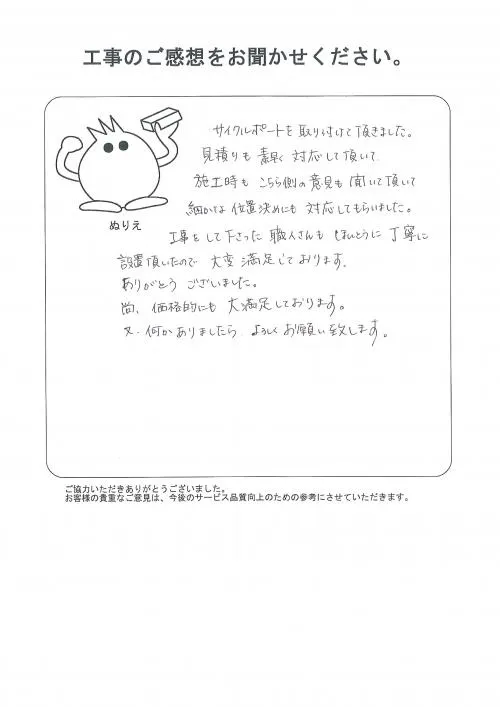 工事のご感想をお聞かせください。
サイクルポートを取り付けて頂きました。
見積りも素早く対応して頂いて
施工時もこちら側の意見も聞いて頂いて
細かな位置決めにも対応してもらいました。
ぬりえ
工事をして下さった職人さんもほんとうに丁寧に
設置頂いたので大変満足しております。
ありがとうございました。
尚、価格的にも大満足しております。
又、何かありましたらよろしくお願い致します。
ご協力いただきありがとうございました。
お客様の貴重なご意見は、今後のサービス品質向上のための参考にさせていただきます。